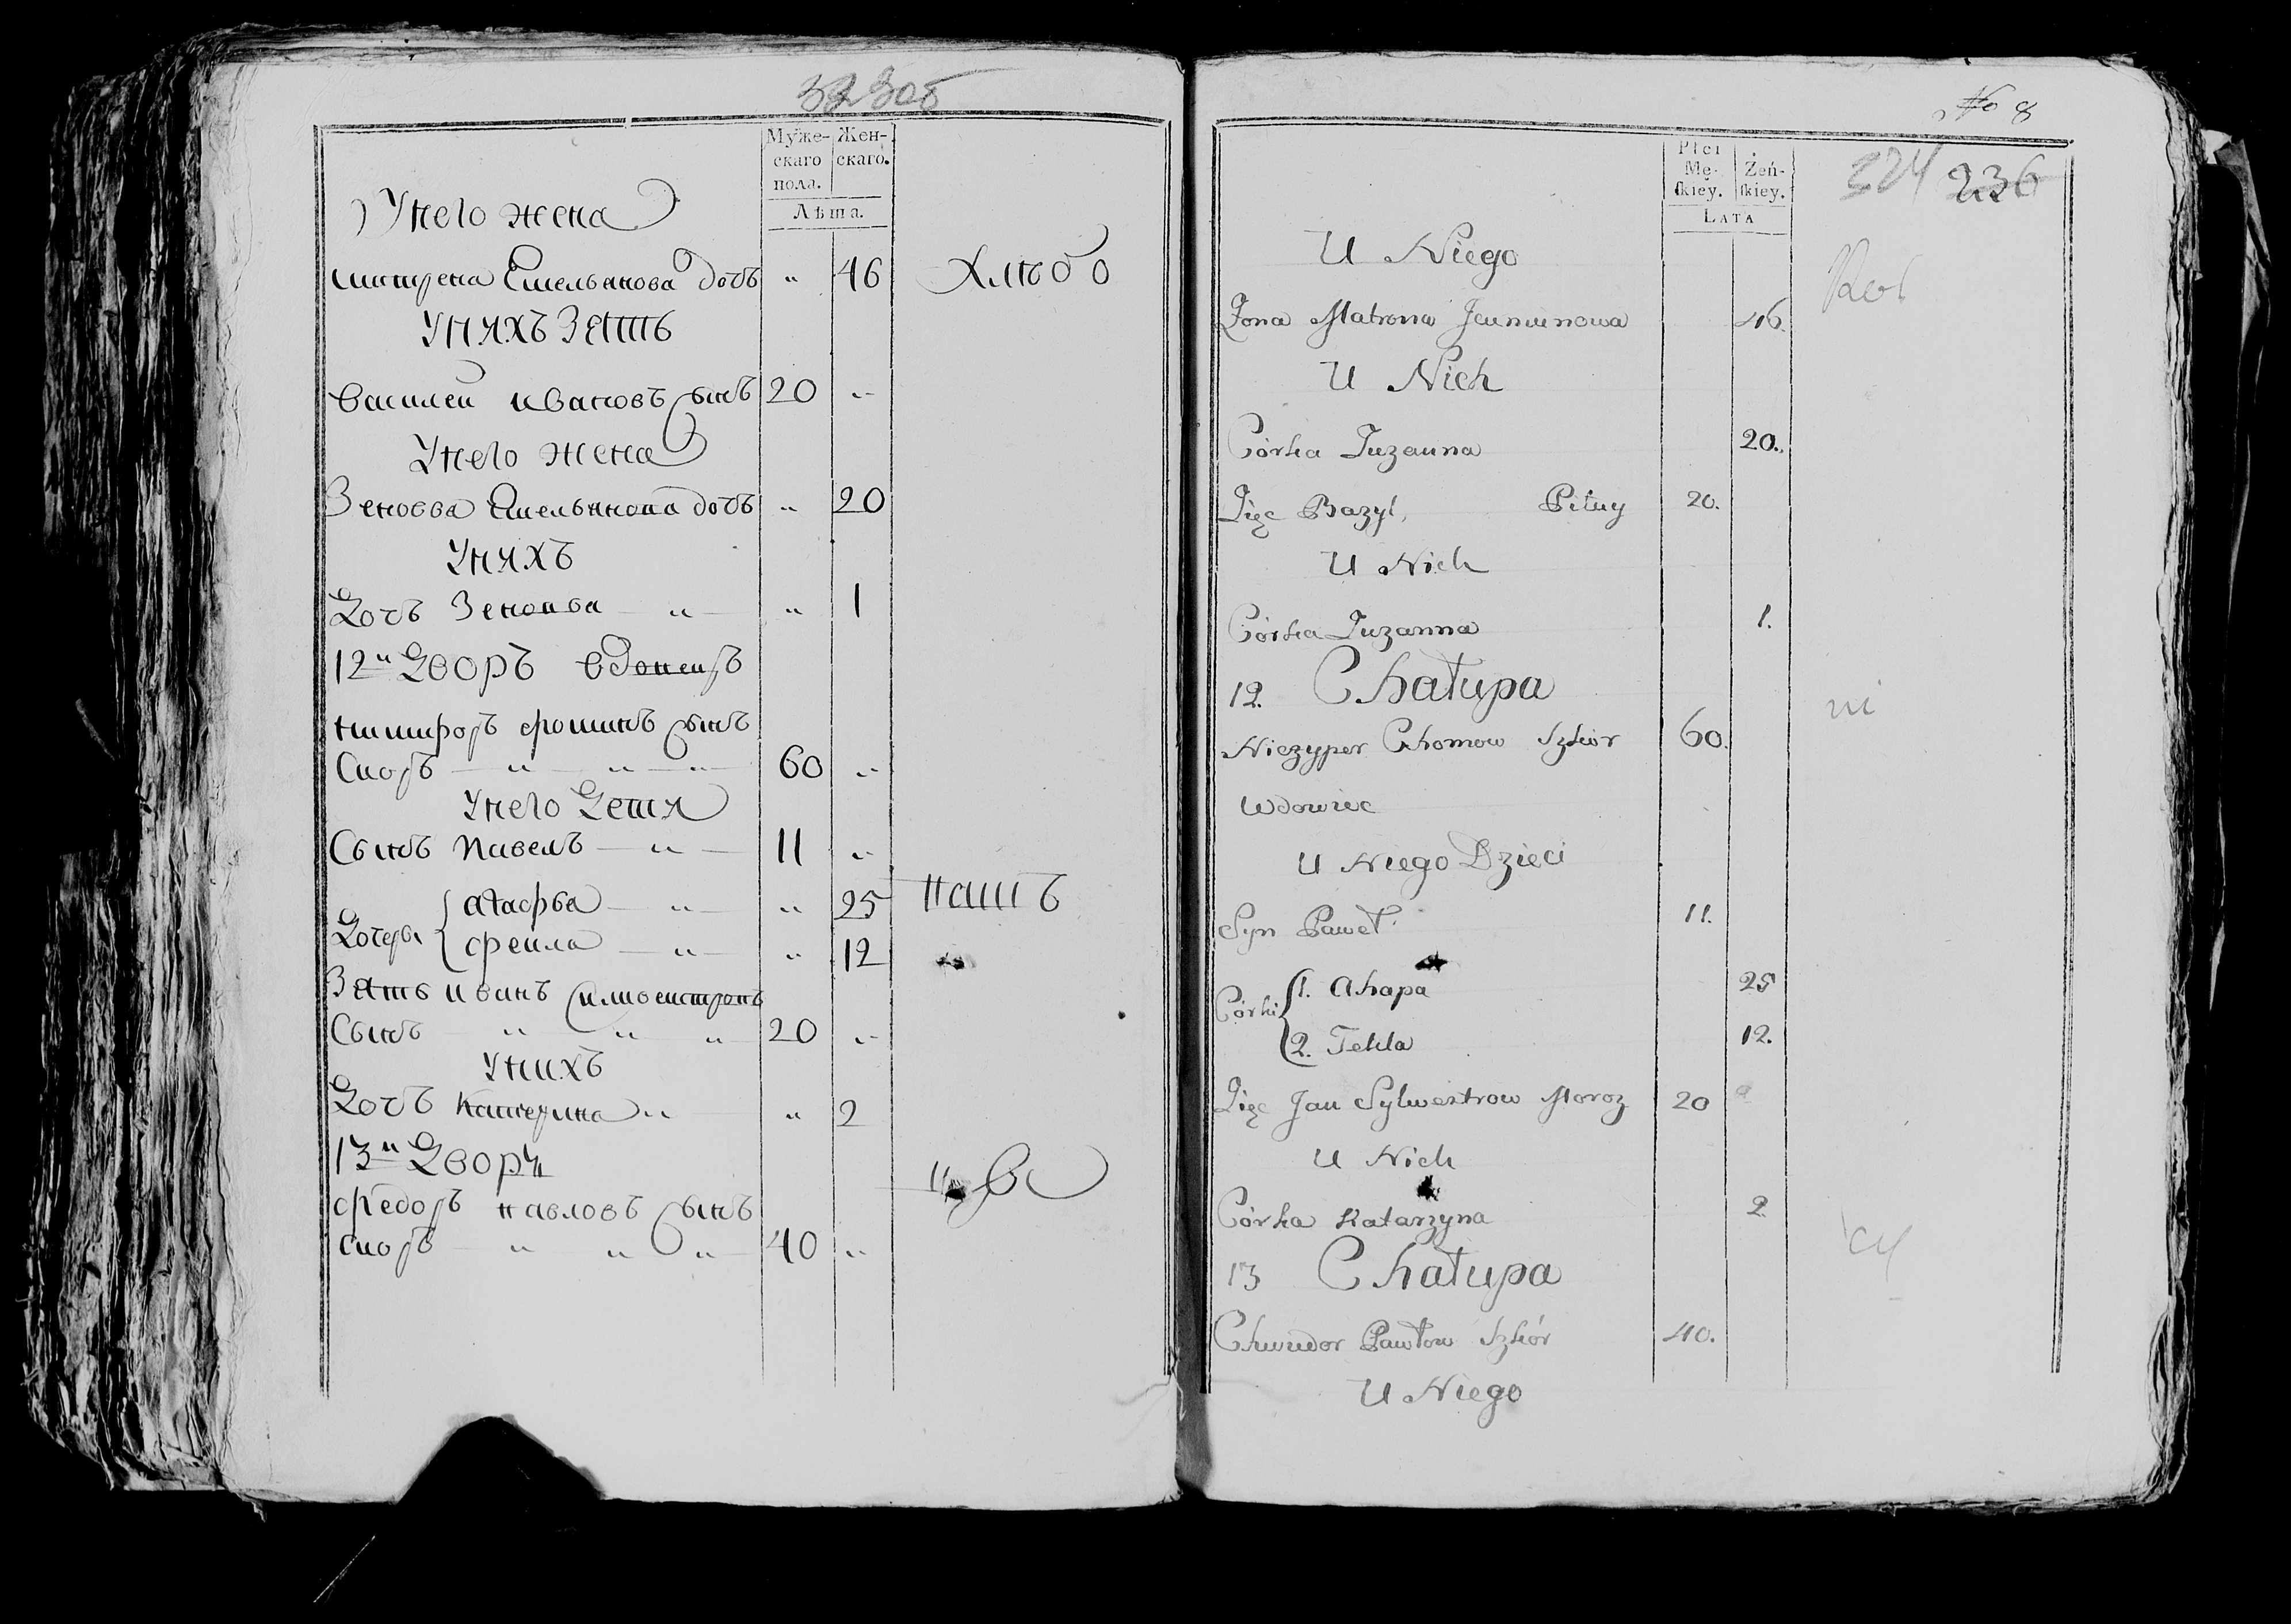 Муже-
скаго
пола.
Жен-
скаго.
Лѣта.
У него жена
Матрена Емельянова дочь " 46 Хлѣбо
У нихъ зять
Василей Ивановъ сынъ 20 "
У него жена
Зеновва Емельянова дочь " 20
У нихъ
Дочь " " 1
12й Дворъ вдовецъ
Никифоръ Фоминъ сынъ
Скоръ " " " 60 "
У него дети
Сынъ Павелъ " 11 "
Дочери { Агафья " " 25 пашъ
Фекла " " 12
Зять Иванъ Силвестровъ
Сынъ " " " 20 "
У нихъ
Дочь Катерина " " 2
13й Дворъ
Федоръ Павловъ сынъ
Скоръ " " " 40 "
No 8
Płci
Mę-
skiey.
Żeń-
skiey.
LATA
324 236
U Niego
Żona Matrona 46.
U Nich
Córka Zuzanna 20.
Zięc Bazyl, Pilny 20.
U Nich
Córka Zuzanna 1.
12. Chałupa
Niczyper Chomow Szkór 60.
Wdowiec
U Niego Dzieci
Syn Paweł 11.
Córki { 1. Ahapa 25
2. Tekla 12.
Zięc Jan Sylwestrow Moroz 20
U Nich
Córka Katarzyna 2
13 Chałupa
Chwiedor Pawłow Szkór 40.
U Niego